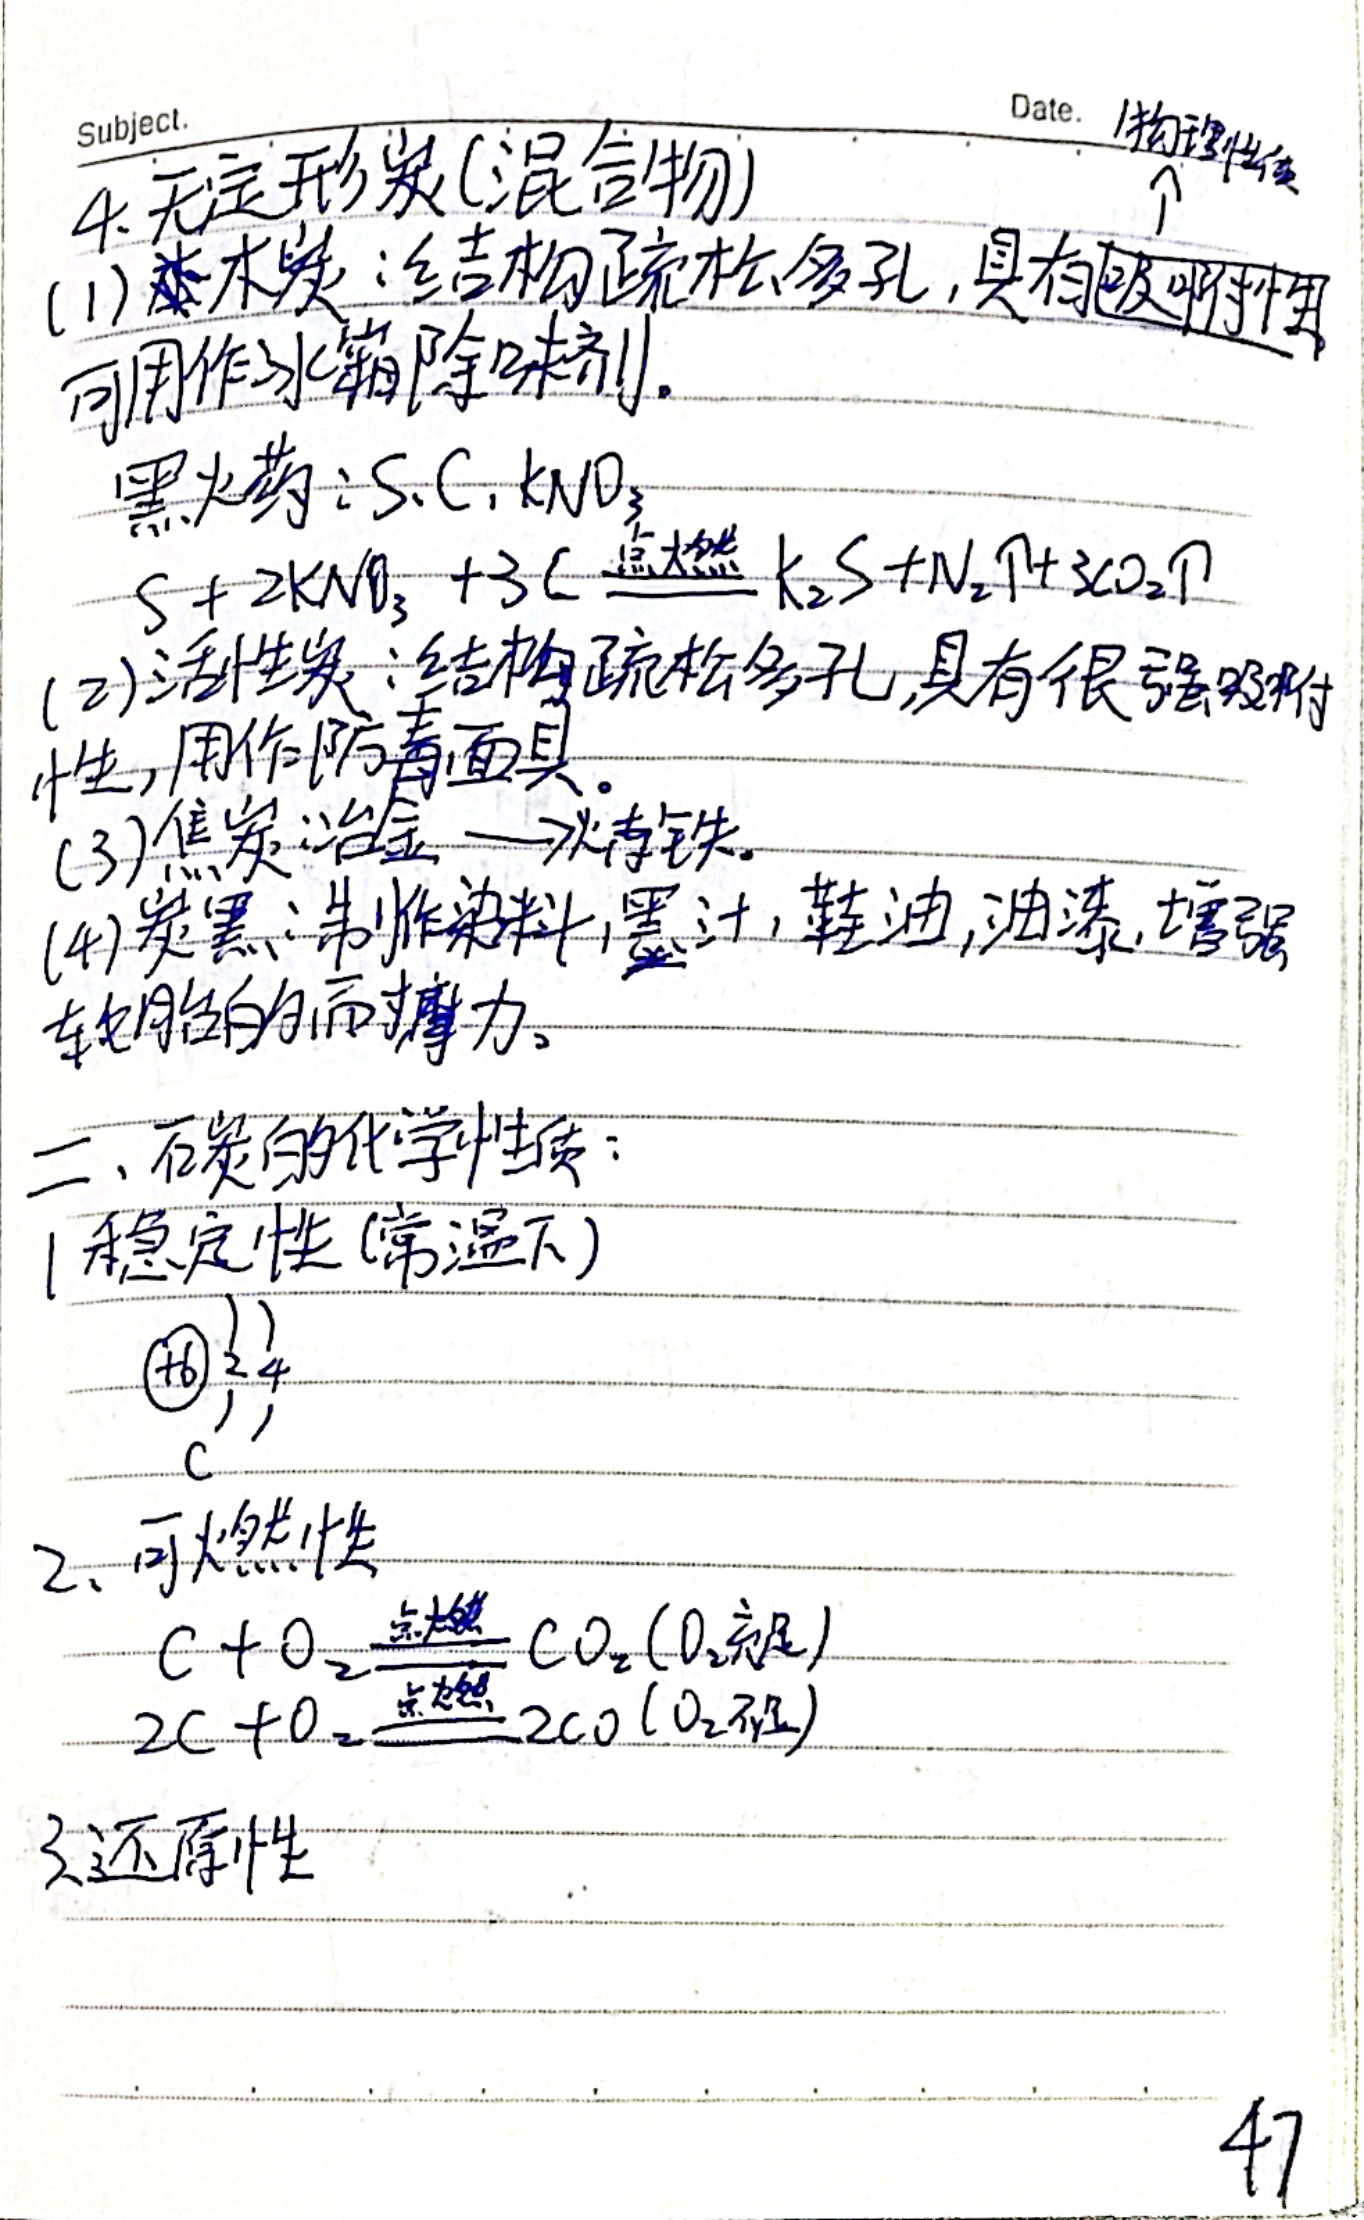 Subject.
Date.
物理性质
↑
4. 无定形炭(混合物)
(1) 木炭:结构疏松多孔,具有吸附性
可用作冰箱除味剂。
黑火药:S、C、KNO₃
S + 2KNO₃ + 3C 点燃 K₂S + N₂↑ + 3CO₂↑
(2)活性炭:结构疏松多孔,具有很强吸附
性,用作防毒面具。
(3)焦炭:冶金 → 炼钢铁。
(4)炭黑:制作染料,墨汁,鞋油,油漆,增强
轮胎的耐摩力。
二、石炭的化学性质:
1 稳定性(常温下)
+6 2 4
C
2、可燃性
C + O₂ 点燃 CO₂(O₂充足)
2C + O₂ 点燃 2CO(O₂不足)
3、还原性
47